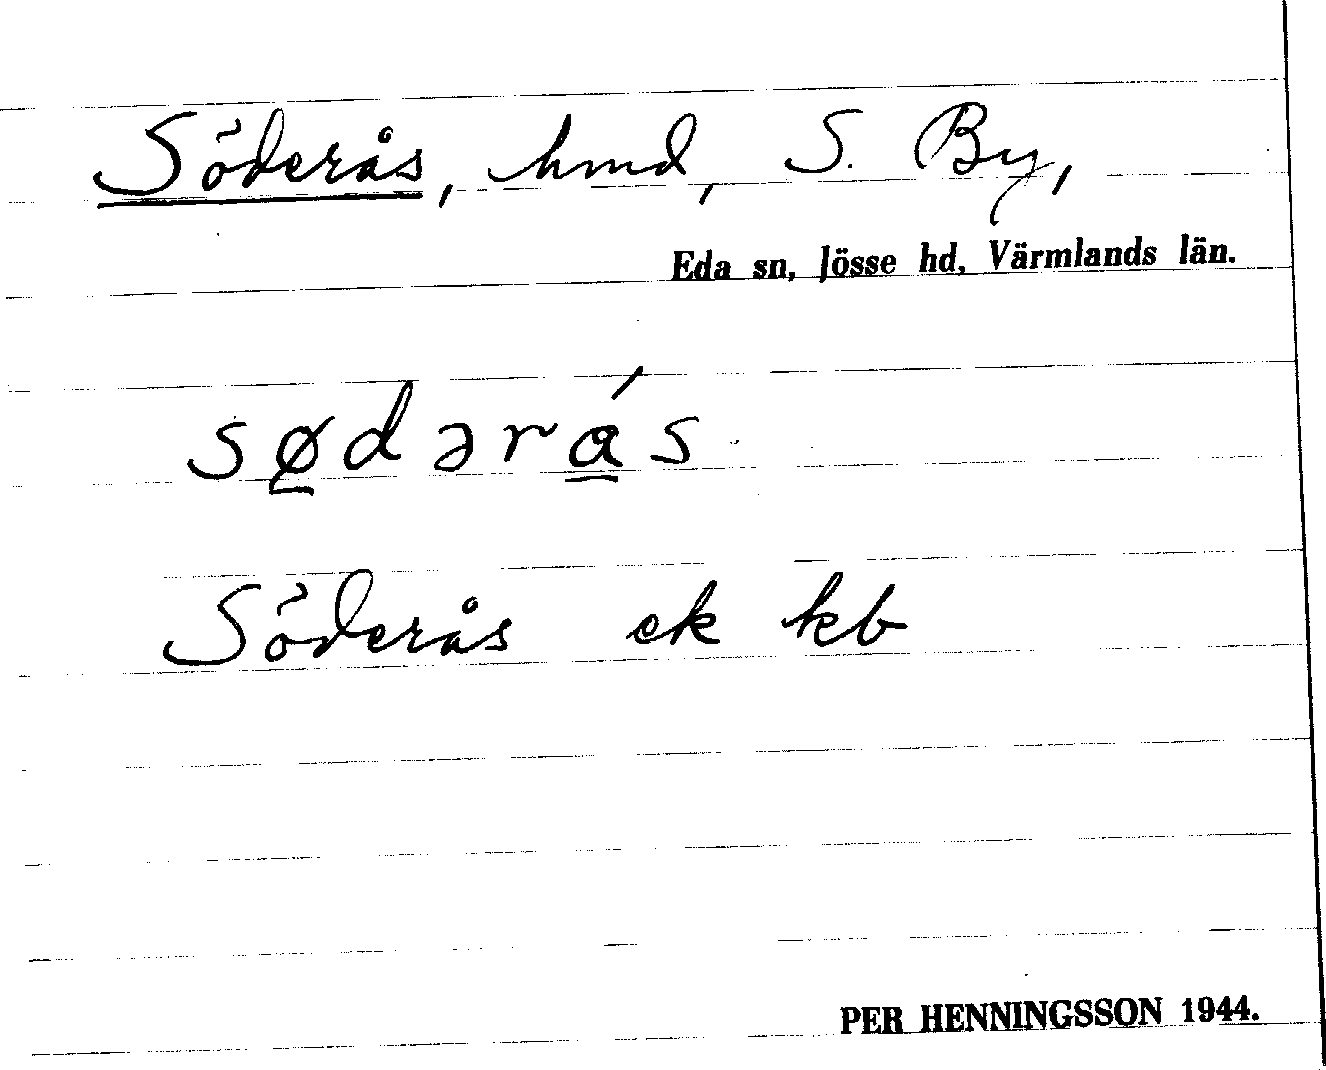 Söderås, hmd, S. By,
Eda sn, Jösse hd, Värmlands län.
sø̲dərá̲s
Söderås ek kb
PER HENNINGSSON 1944.